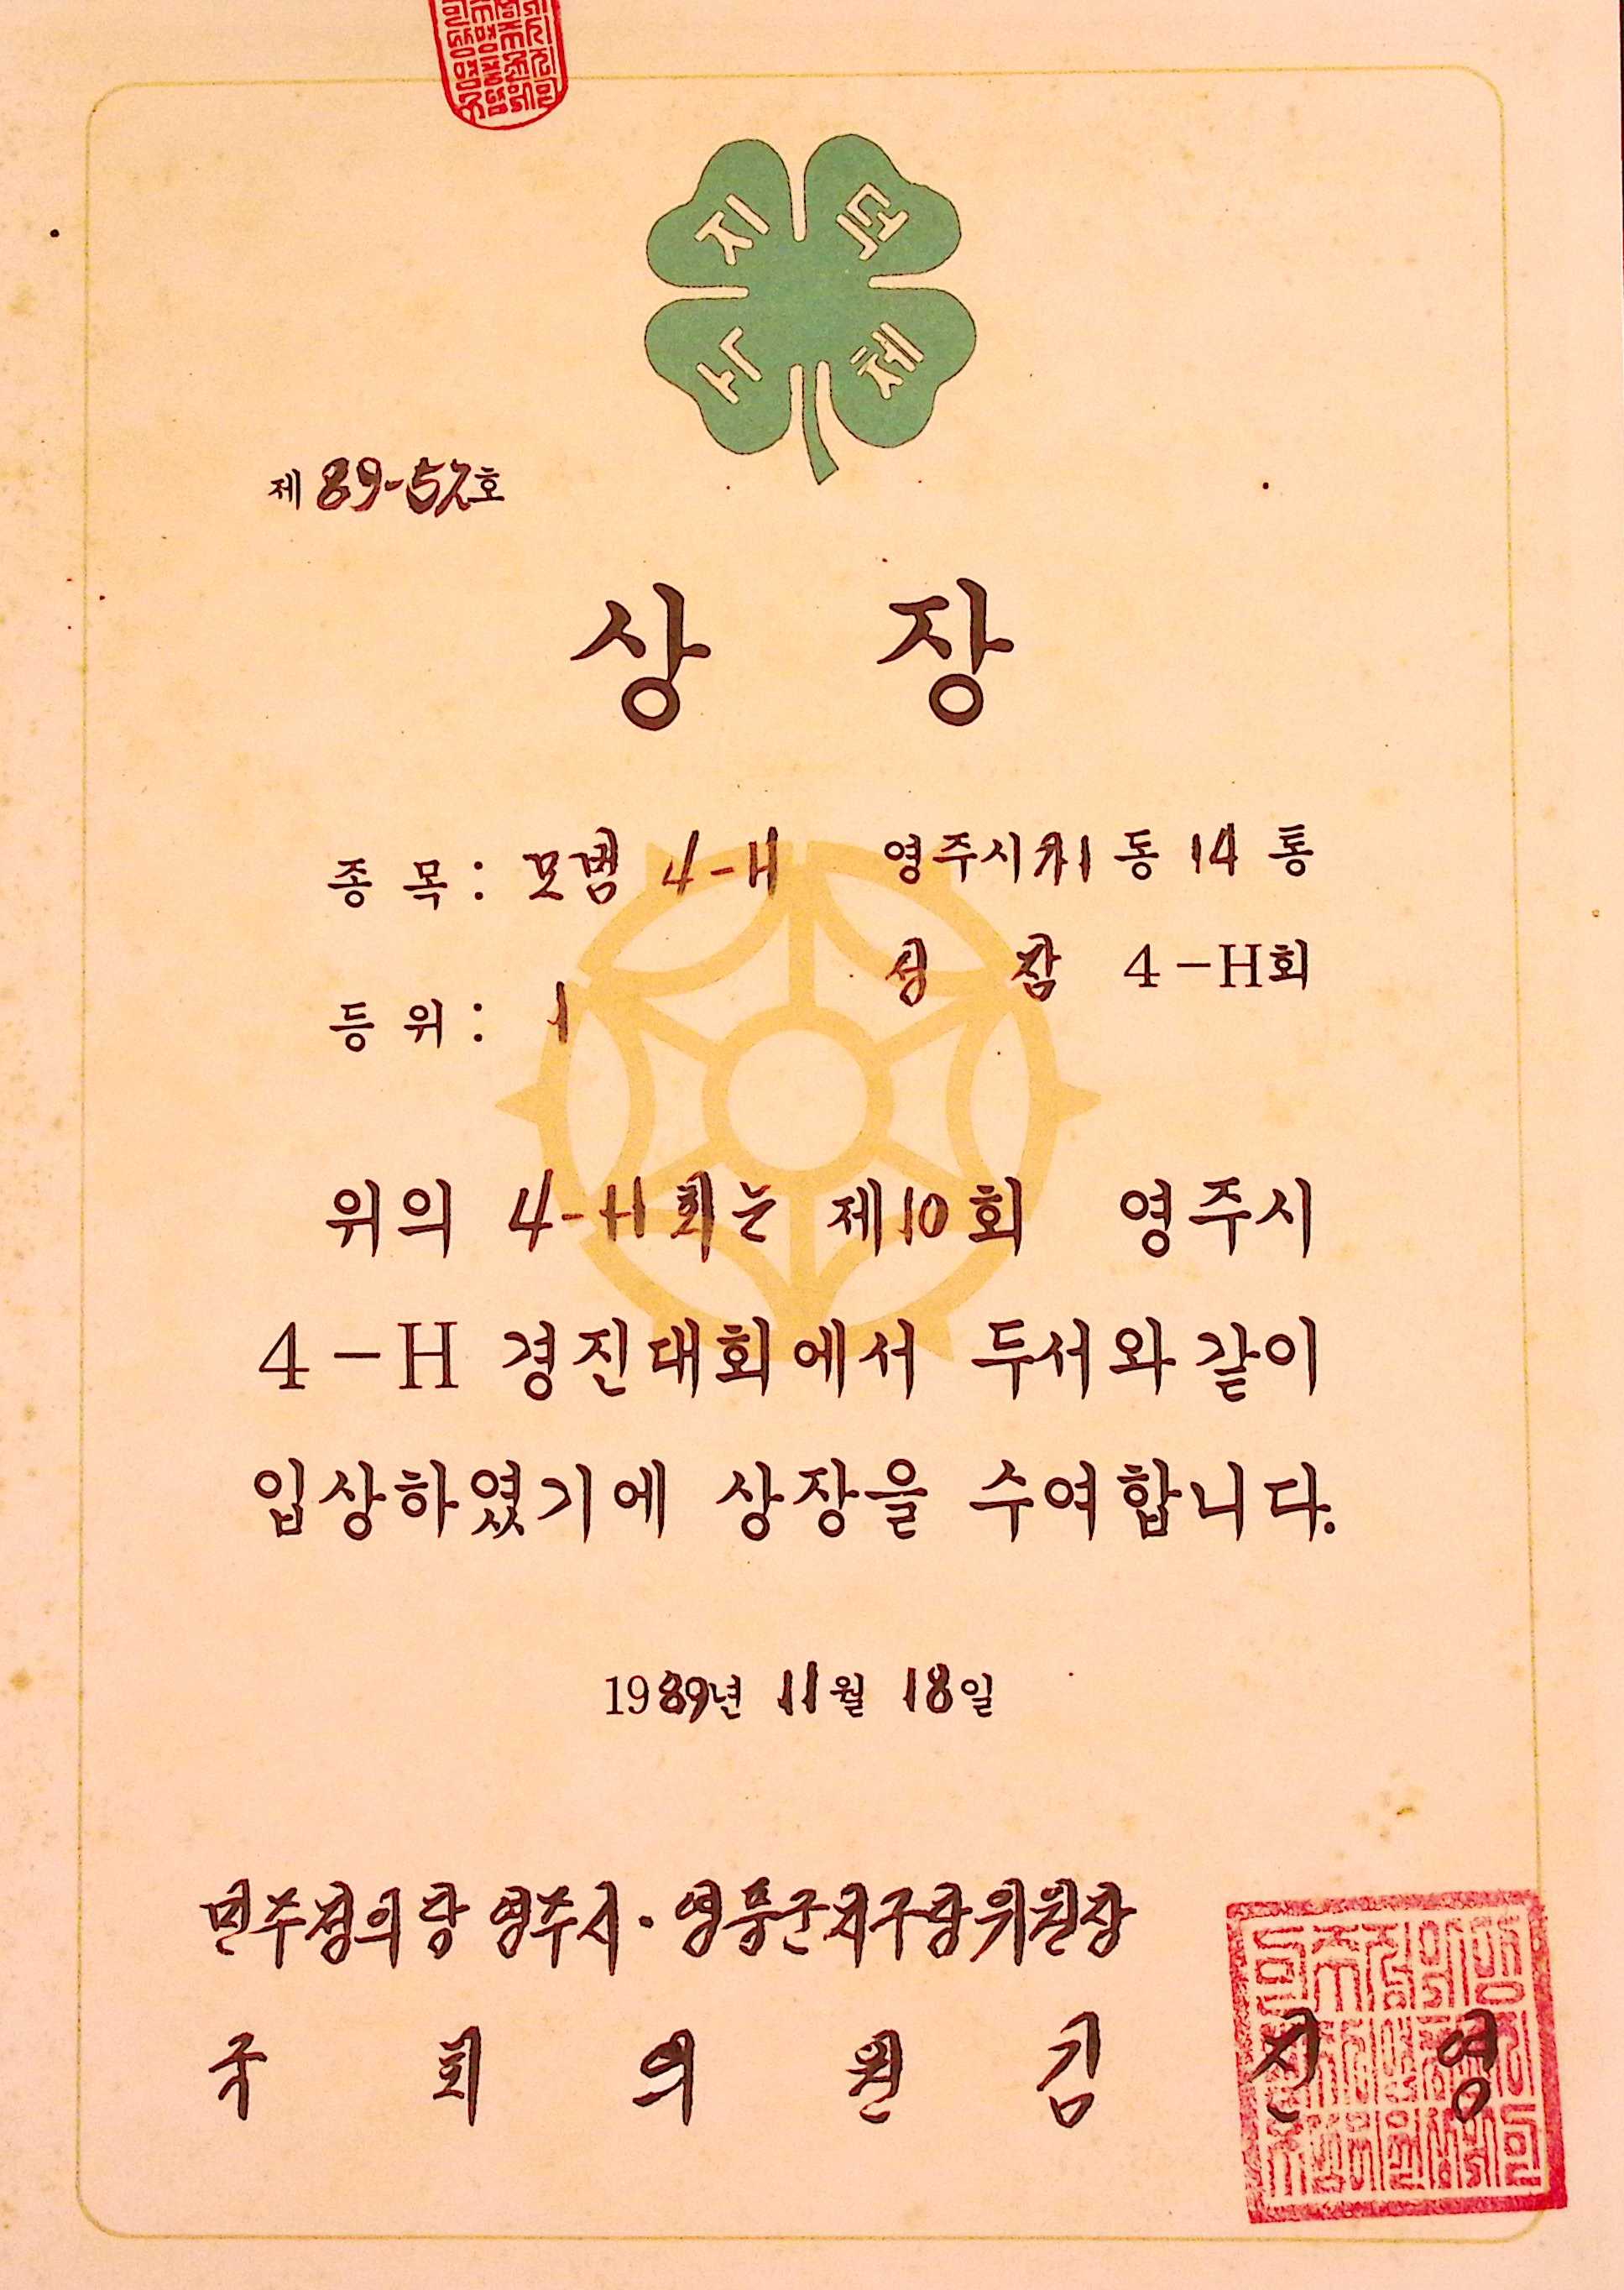 지 덕
노 체
제 89-52호
상 장
종 목 : 모범 4-H
영주시 동 14 통
4-H회
등 위 : 1
위의 4-H회는 제10회 영주시
4-H 경진대회에서 두서와 같이
입상하였기에 상장을 수여합니다.
1989년 11월 18일
민주정의당 영주시·영풍군지구당위원장
국 회 의 원 김 진 영